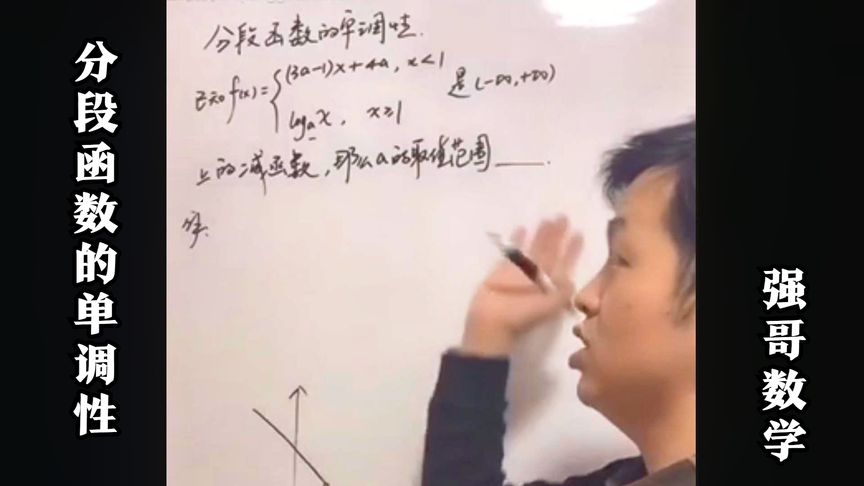 分段函数的单调性
分段函数的单调性.
已知f(x)={(3a-1)x+4a, x<1
logₐx, x≥1
是(-∞,+∞)
上的减函数,那么a的取值范围____.
解:
强哥数学